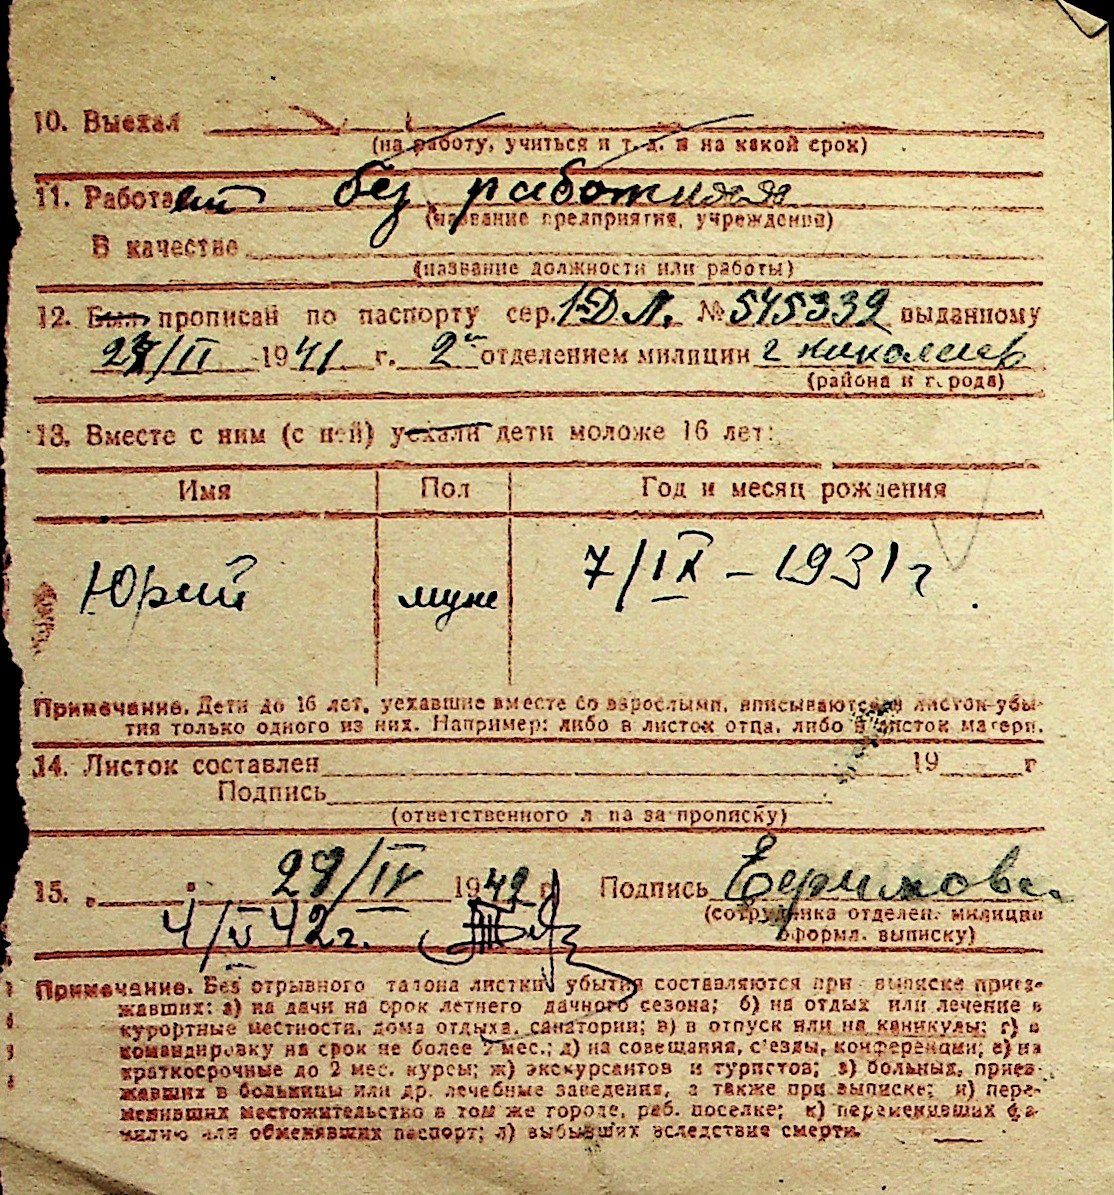 10. Выехал
(на работу, учиться и т. д. и на какой срок)
11. Работает без работы
(название предприятия, учреждения)
В качестве
(название должности или работы)
12. Был прописан по паспорту сер. 1-ДЛ. № 545339 выданному
/II 1941 г. 2м отделением милиции г Николаев
(района и города)
13. Вместе с ним (с ней) уехали дети моложе 16 лет:
Имя Пол Год и месяц рождения
Юрий муж 7/IX – 1931 г.
Примечание. Дети до 16 лет, уехавшие вместе со взрослыми, вписываются в листок убы-
тия только одного из них. Например: либо в листок отца, либо в листок матери.
14. Листок составлен 19 г
Подпись
(ответственного лица за прописку)
15. 29/IV 1942 г. Подпись Ефимова
(сотрудника отделен. милиции
оформл. выписку)
4/V 42г.
Примечание. Без отрывного талона листки убытия составляются при выписке приез-
жавших: а) на дачи на срок летнего дачного сезона; б) на отдых или лечение в
курортные местности, дома отдыха, санатории; в) в отпуск или на каникулы; г) в
командировку на срок не более 2 мес.; д) на совещания, с'езды, конференции; е) на
краткосрочные до 2 мес. курсы; ж) экскурсантов и туристов; з) больных, приез-
жавших в больницы или др. лечебные заведения, а также при выписке; и) пере-
менивших местожительство в том же городе, раб. поселке; к) переменивших фа-
милию или обменявших паспорт; л) выбывших вследствие смерти.